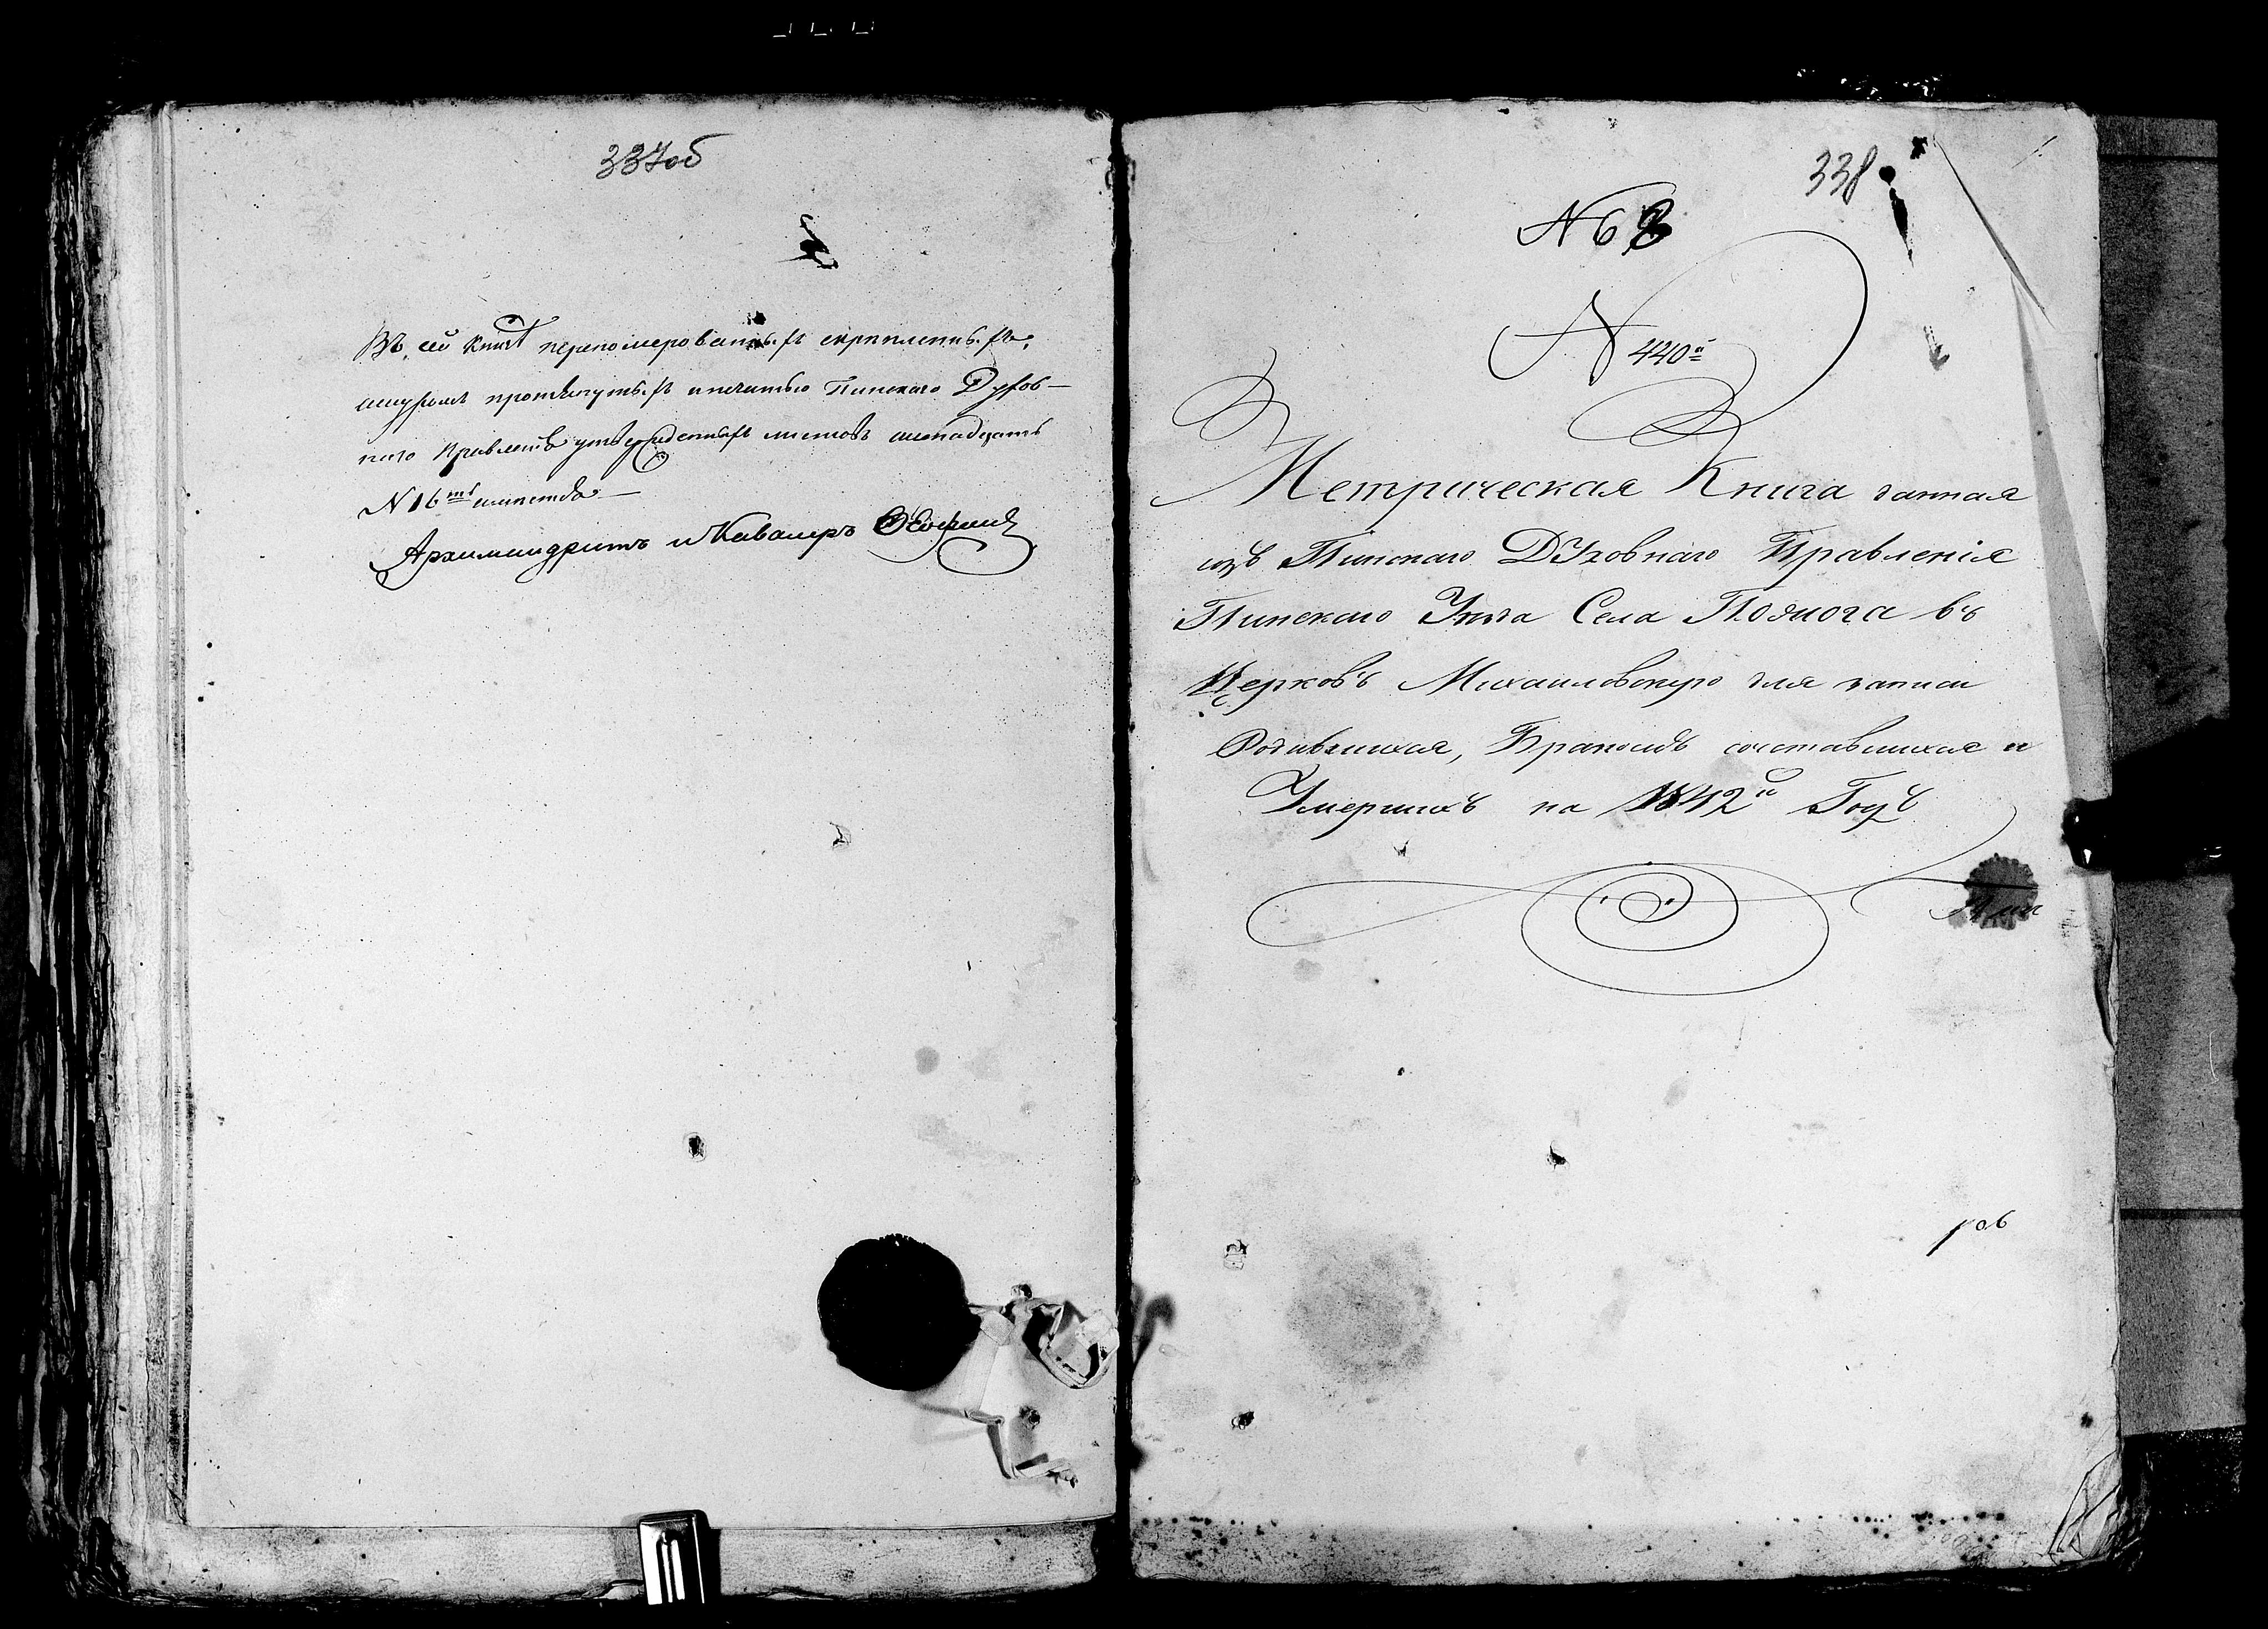 337об
Въ сей книгѣ переномерованныхъ скрѣпленныхъ,
шнуромъ протянутыхъ и печатью Пинскаго Духов-
наго Правленія утвержденныхъ листовъ шеснадцать
N 16ть листовъ.—
Архимандритъ и Кавалеръ
338
N 68
N 440й
Метрическая Книга данная
изъ Пинскаго Духовнаго Правленія
Пинскаго Уѣзда Села в ъ
Церковь Михаиловскую для записи
Родившихся, Бракомъ сочетавшихся и
Умершихъ на 1842й Годъ
1 об